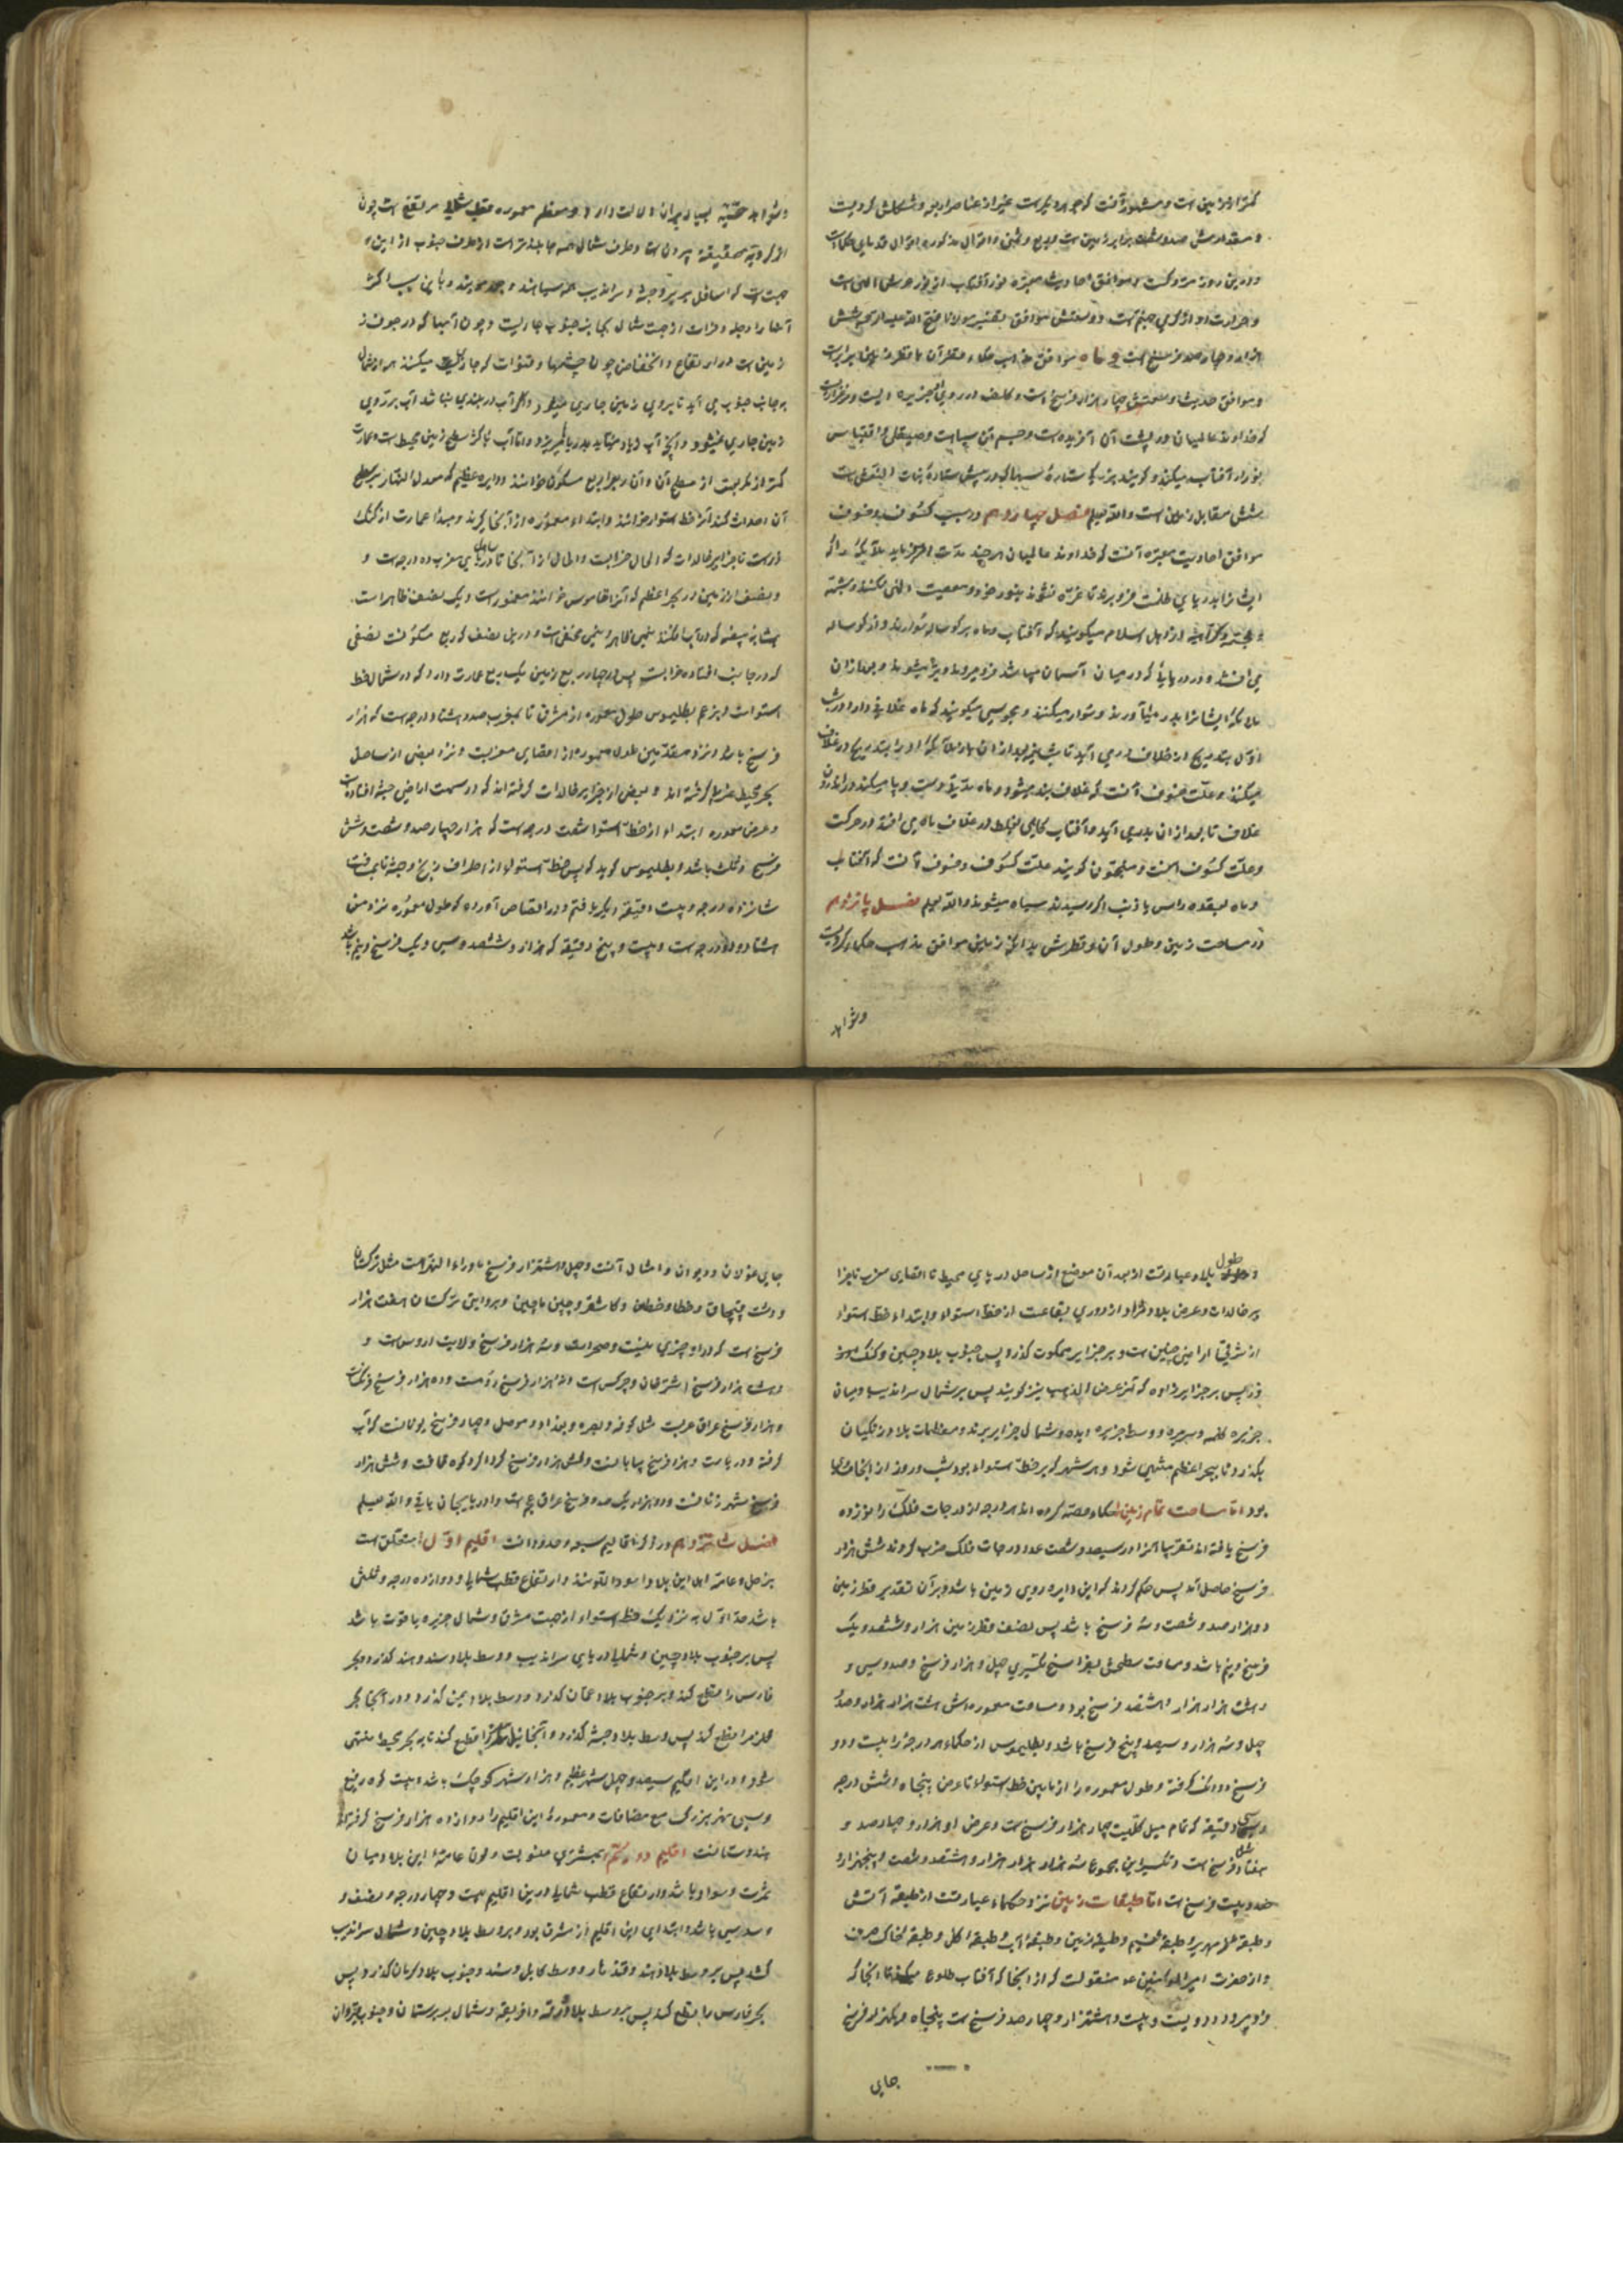 کمتر از زمین است و مشهور آنست که جوهر دیگرست غیر از عناصر اربع و شکلش کرویست
و مقدارش صد و شصت برابر زمین است و ربع و ثمنی و اقوال مذکوره اقوال قدمای حکماست
و موافق احادیث معتبره نور آفتاب از نور عرش الهی است
و حرارت او از گرمی جهنم است و وسعتش موافق تفسیر مولانا فتح الله علیه الرحمه شش
هزار و چهار صد فرسخ است و ماه موافق مذهب حکما
و موافق حدیث چهار هزار فرسخ است و کلف در روی
که خداوند عالمیان در پشت آن آفریده است و جسم آن سیاهست و صیقلی و اقتباس
نور از آفتاب میکند و گویند بزرگی ستاره سها که در پیش ستاره بنات النعش است
شش مقابل زمین است والله یعلم فصل چهاردهم در سبب کسوف و خسوف
موافق احادیث معتبره آنست که خداوند عالمیان هر چند مدت امر فرماید ملائکه را که
ایشانرا بدریای ظلمت فرو برند تا غره نشوند بنور خود و معصیت الهی نکنند و شبهه
اهل اسلام میگویند که آفتاب و ماه بر گوساله سوارند و از گوساله
می افتند و در دریائی که در میان آسمان میباشد فرو میروند و تیره میشوند و بعد از آن
ملائکه ایشانرا بدر می آورند و سوار میکنند و مجوسی میگویند که ماه غلافی دارد و در شب
اول بتدریج از غلاف در می آید تا شب نیمه بعد از آن باز ملائکه او را بتدریج در غلاف
میکنند و علت خسوف آنست که غلاف بند میشود و ماه مدتی دست و پا میکند در اندرون
غلاف تا بعد از آن بدر می آید و آفتاب گاهی بغلط در غلاف ماه می افتد در حرکت
و علت کسوف اینست و منجمون گویند علت کسوف و خسوف آنست که آفتاب
و ماه بعقده راس یا ذنب اگر رسیدند سیاه میشوند والله یعلم فصل پانزدهم
در مساحت زمین و طول آن و قطرش بدانکه زمین موافق مذهب حکما کرویست
وشواهد
وشواهد حقیقیه بسیار بر آن دلالت دارد و معظم معموره قطب شمالی مرتفع است چون
از کرویه حقیقیه بیرون است و طرف شمال همه جا بلندتر است از طرف جنوب از این
جهت است که اسافل بربر و حبشه و سراندیب همه سیاهند و بجده مویند و باین سبب اکثر
آبها را دجله و فرات از جهت شمال بجانب جنوب جاریست و چون آبها که در جوف
زمین است در ارتفاع و انخفاض چون چشمها و قنوات که جاری میکنند هر از شمال
بجانب جنوب می آید تا بروی زمین جاری میشود و اگر آب در بلندی نباشد آب بر روی
زمین جاری نمیشود و آنچه آب زیاد میآید بدریا میریزد و اما آب باکثر سطح زمین محیط است و عمارت
کمتر از ربعست از سطح آن و آن ربع را ربع مسکون خوانند و دایره عظیم که معدل النهار بر سطح
آن احداث کند آنرا خط استوا خوانند و ابتداء معموره را از آنجا گیرند و مبدأ عمارت از گنگ
دزست تا جزایر خالدات که الحال خرابست و اطال از آنجا تا ساحل دریای مغرب ده درجه است و
و نصف از زمین در بحر اعظم که آنرا قاموس خوانند مغمورست و یک نصف ظاهر است
بمثابه بیضه که در آب افکنند نیمی ظاهر و نیمی مخفی است و درین نصف که ربع مسکونست نصفی
که در جانب افتاده خرابست پس از چهار ربع زمین یک ربع عمارت دارد که در شمال خط
استواست و بزعم بطلیموس طول معموره از مشرق تا بمغرب صد و هشتاد درجه است که هزار
فرسخ باشد و نزد متقدمین طول معموره از اقصای مغربست و نزد بعضی از ساحل
بحر محیط غربی گرفته اند و بعضی از جزایر خالدات گرفته اند که در سمت اراضی حبشه افتاده است
و عرض معموره ابتدا او از خط استوا شصت درجه است که هزار و چهار صد و شصت و شش
فرسخ و ثلث باشد و بطلیموس گوید که پس خط استوا از اطراف زنج و حبشه تا بمسافت
شانزده درجه و بیست دقیقه دیگر یافتم و در اقتصاص آورده که طول معموره نزد من
هشتاد و دو درجه است و بیست و پنج دقیقه که هزار و ششصد و سی و یک فرسخ و نیم باشد
و طول بلاد عبارتست از بعد آن موضع از ساحل دریای محیط تا اقصای مغرب تا جزا
یر خالدات و عرض بلاد مراد از دوری بقاعست از خط استواء و ابتداء خط استواء
از شرقی اراضی چین است و بر جزایر جمکوت گذرد پس جنوب بلاد چین و کنک دز
دز پس بر جزایر زاوه که آنرا عرض الذهب نیز گویند پس بر شمال سراندیب و میان
جزیره کله و سریره و وسط جزیره دیبه و شمال جزایر برند و معظمات بلاد زنگیان
بگذرد تا ببحر اعظم منتهی شود و هر شهر که بر خط استواء بود شب و روز از آنجا مساوی
بود اما مساحت تمام زمین حکماء حصه کرده اند هر درجه از درجات فلک را نوزده
فرسخ یافته اند تقریبا آنرا در سیصد و شصت عدد درجات فلک ضرب کردند شش هزار
فرسخ حاصل آمد پس حکم کردند که این دایره روی زمین باشد و بر آن تقدیر قطر زمین
دو هزار صد و شصت و سه فرسخ باشد پس نصف قطر زمین هزار و ششصد و یک
فرسخ و نیم باشد و مسافت سطحش بفراسخ تکسیری چهل و هزار فرسخ و صد و سی و
و هشت هزار هزار و هشتصد فرسخ بود و مساحت معموره اش هشت هزار هزار و صد
چهل و سه هزار و سیصد و پنج فرسخ باشد و بطلیموس از حکماء هر درجه را بیست و دو
فرسخ و دانک گرفته و طول معموره را از مابین خط استوا تا عرض پنجاه و شش درجه
و سی دقیقه که تمام میل کلیست چهار هزار فرسخ است و عرض او هزار و چهار صد و
هفتاد فرسخ است و تکسیر این مجموع سه هزار هزار هزار و هشتصد و شصت و پنجهزار و
صد و بیست فرسخ است اما طبقات زمین نزد حکماء عبارتست از طبقه آتش
و طبقه زمهریر و طبقه نسیم و طبقه زمین و طبقه آب و طبقه گل و طبقه خاک صرف
و از حضرت امیر المومنین ع منقولست که از آنجا که آفتاب طلوع میکند تا آنجا که
فرو میرود دویست و بیست و هشتهزار و چهار صد فرسخ است پنجاه و یکهزار فرسخ
جای
جای غولان و دیوان و امثال آنست و چهل و هشتهزار فرسخ ماوراء النهر است مثل ترکستان
و دشت قبچاق و خطا و خطن و کاشغر و چین و ماچین و بروایتی ترکستان هفت هزار
فرسخ است که در او چیزی نیست و صحراست و سه هزار فرسخ ولایت اروس است و
و سه هزار فرسخ اشترخان و چرکس است و هزار فرسخ رومست و ده هزار فرسخ فرنگست
و هزار فرسخ عراق عربست مثل کوفه و بصره و بغداد و موصل و چهار فرسخ یونانست که آب
گرفته و دریاست و هزار فرسخ بیابانست و شش هزار فرسخ گرداگرد کوه قافست و شش هزار
فرسخ شهر زنانست و دو هزار یک صد و فرسخ عراق عجم است و آذربایجان باقی والله یعلم
فصل شانزدهم در ذکر اقالیم سبعه و حدود آنست اقلیم اول متعلق است
بزحل و عامه اهل این بلاد اسود اللونند و ارتفاع قطب شمالی دوازده درجه و ثلثی
باشد حد اول به نزدیک خط استواء از جهت مشرق و شمال جزیره یاقوت باشد
پس بر جنوب بلاد چین و شمالی دریای سراندیب و وسط بلاد سند و هند گذرد و بحر
فارس را قطع کند و بر جنوب بلاد عمان گذرد و وسط بلاد یمن گذرد و در آنجا بحر
قلزم را قطع کند پس وسط بلاد حبشه گذرد و آنجا نیل مصر را قطع کند تا به بحر محیط منتهی
شود و در این اقلیم سیصد و چهل شهر عظیم و هزار شهر کوچک باشد و بیست کوه رفیع
و سی نهر بزرگ مع مضافات و معموره این اقلیم را دوازده هزار فرسخ گرفته اند
هندوستانست اقلیم دویم بمشتری منسوبست و لون عامه این بلاد میان
سمرت و سواد باشد و ارتفاع قطب شمالی درین اقلیم بیست و چهار درجه و نصف و
و سدسی باشد و ابتدای این اقلیم از مشرق بود و بر وسط بلاد چین و شمال سراندیب
کشد پس بر وسط بلاد هند و قندهار و وسط کابل و سند و جنوب بلاد کرمان گذرد پس
بحر فارس را قطع کند پس بر وسط بلاد برقه و افریقیه و شمال بربرستان و جنوب قیروان